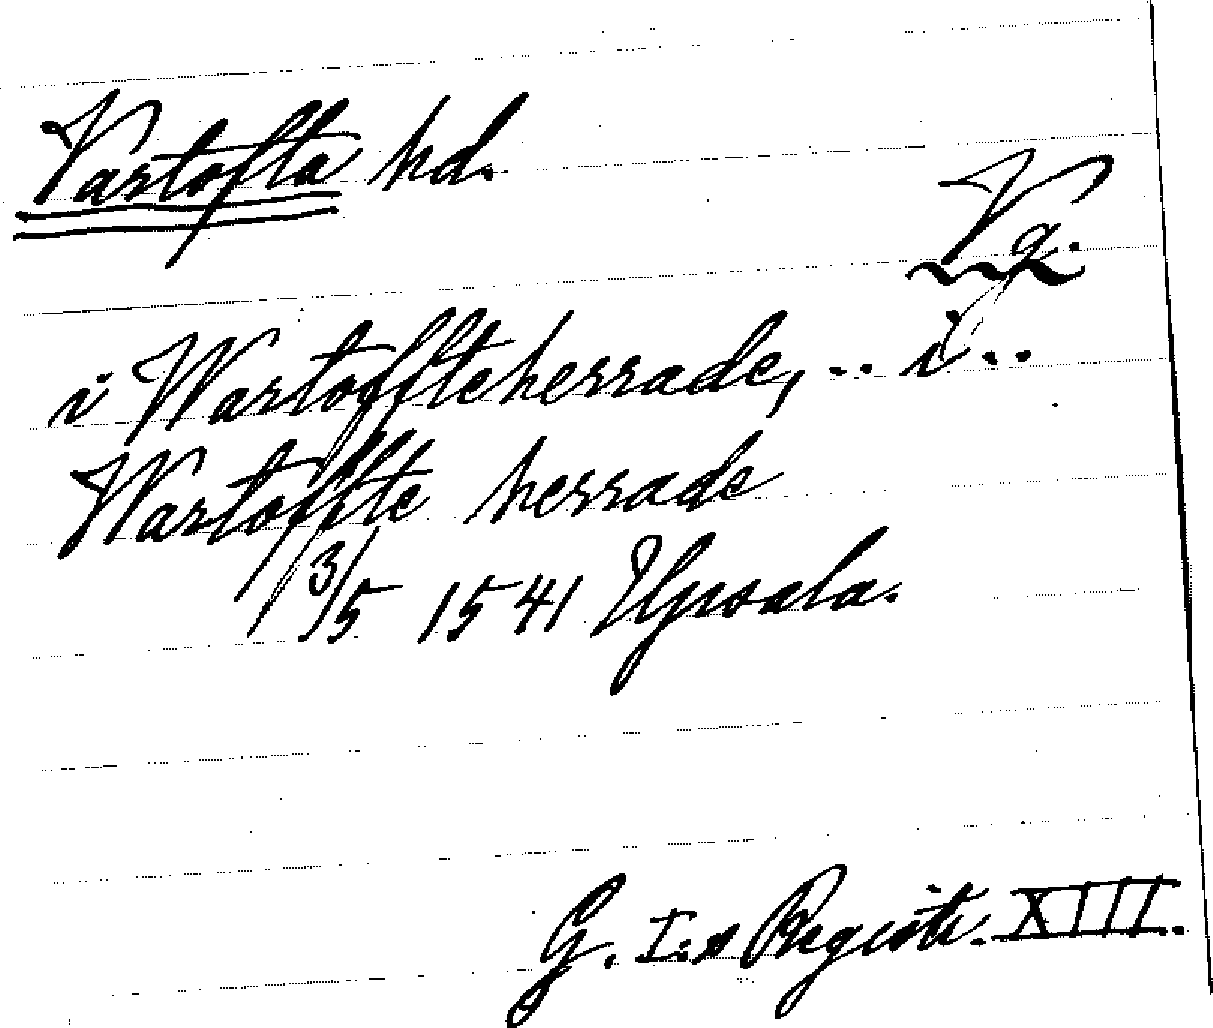 Vartofta hd.
Vg.
i Wartoffteherrade, .. i ..
Wartoffte herrade
3/5 1541 Upsala.
G. I:s Registr. XIII.